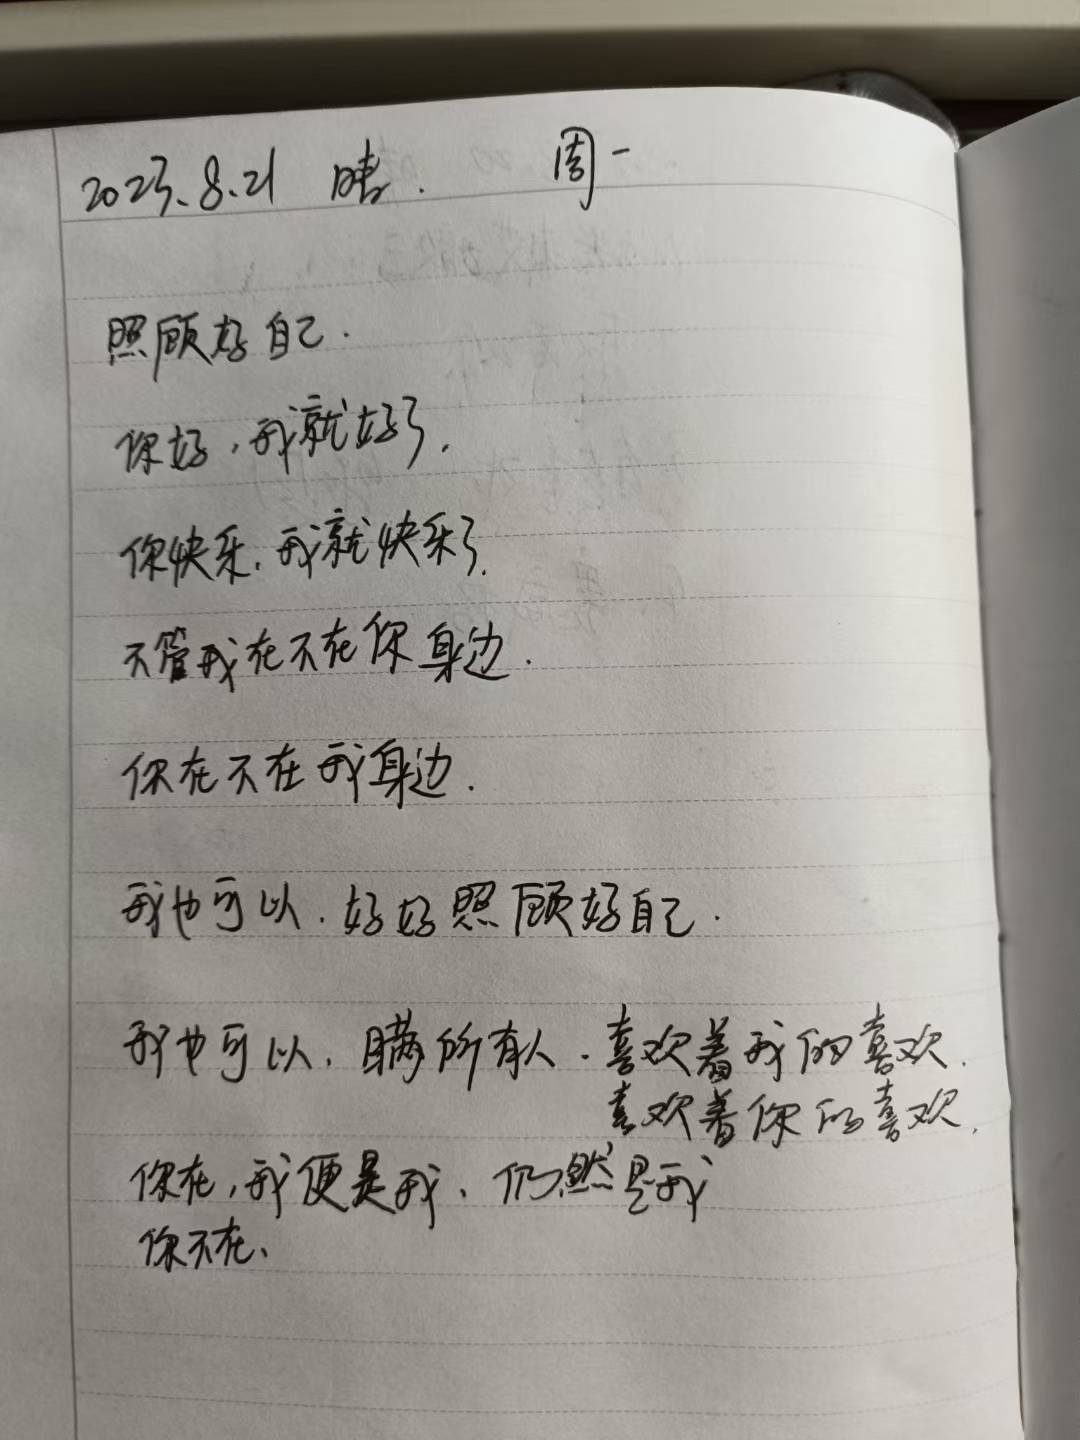 2023.8.21 晴. 周一
照顾好自己.
你好,我就好了.
你快乐,我就快乐了.
不管我在不在你身边.
你在不在我身边.
我也可以.好好照顾好自己.
我也可以,瞒所有人.喜欢着我的喜欢.
喜欢着你的喜欢.
你在,我便是我、仍然是我
你不在、